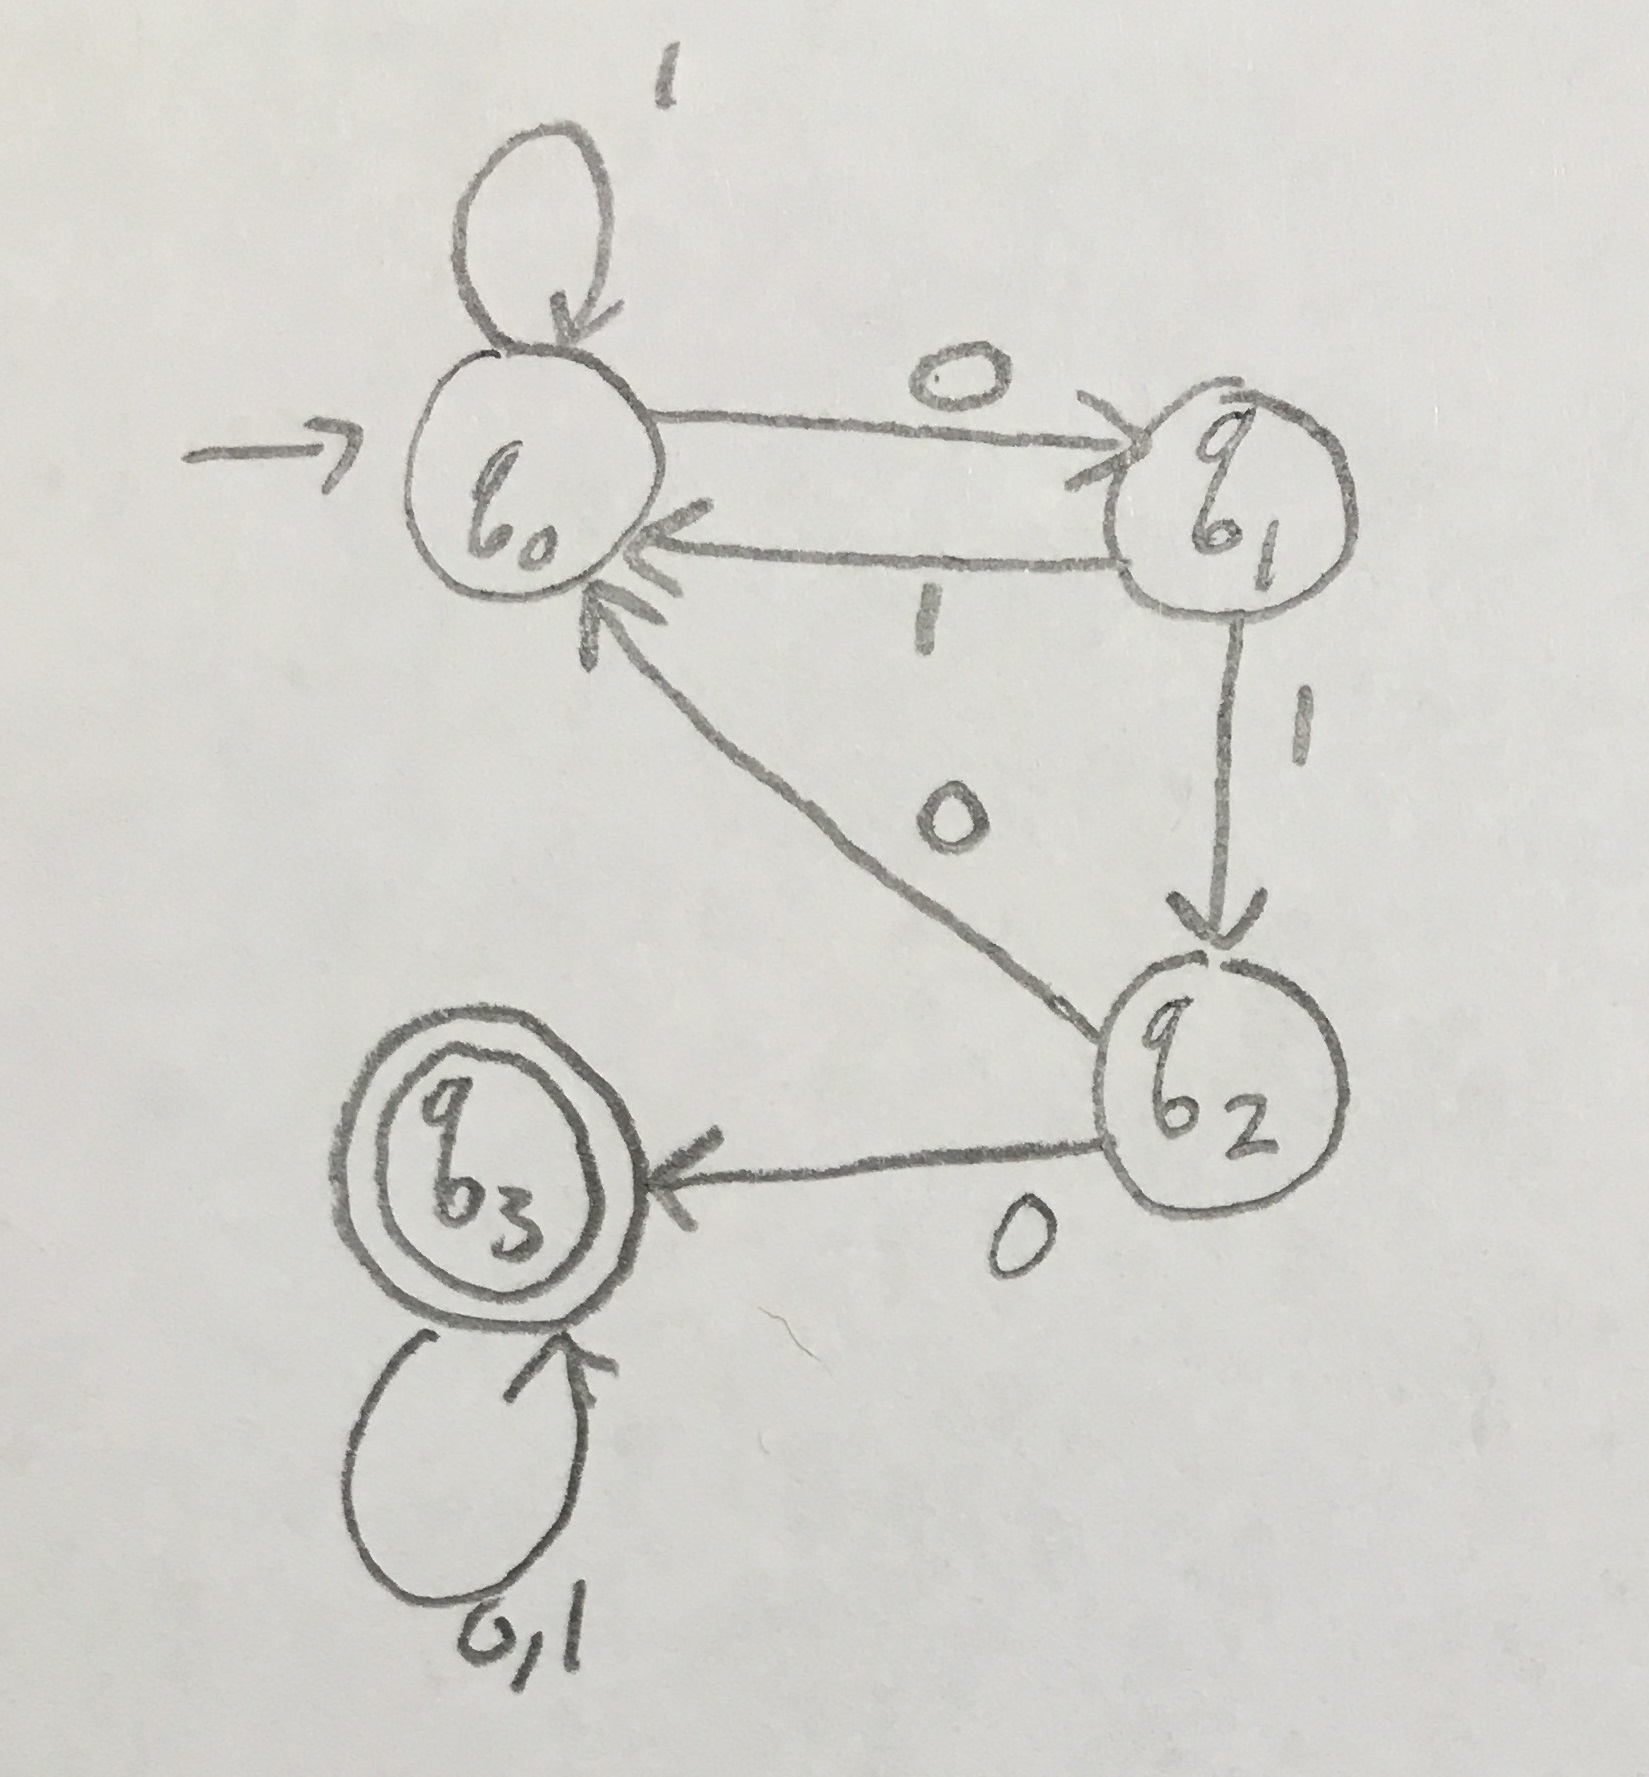 1
0
q0
q1
1
1
0
q2
q3
0
0,1